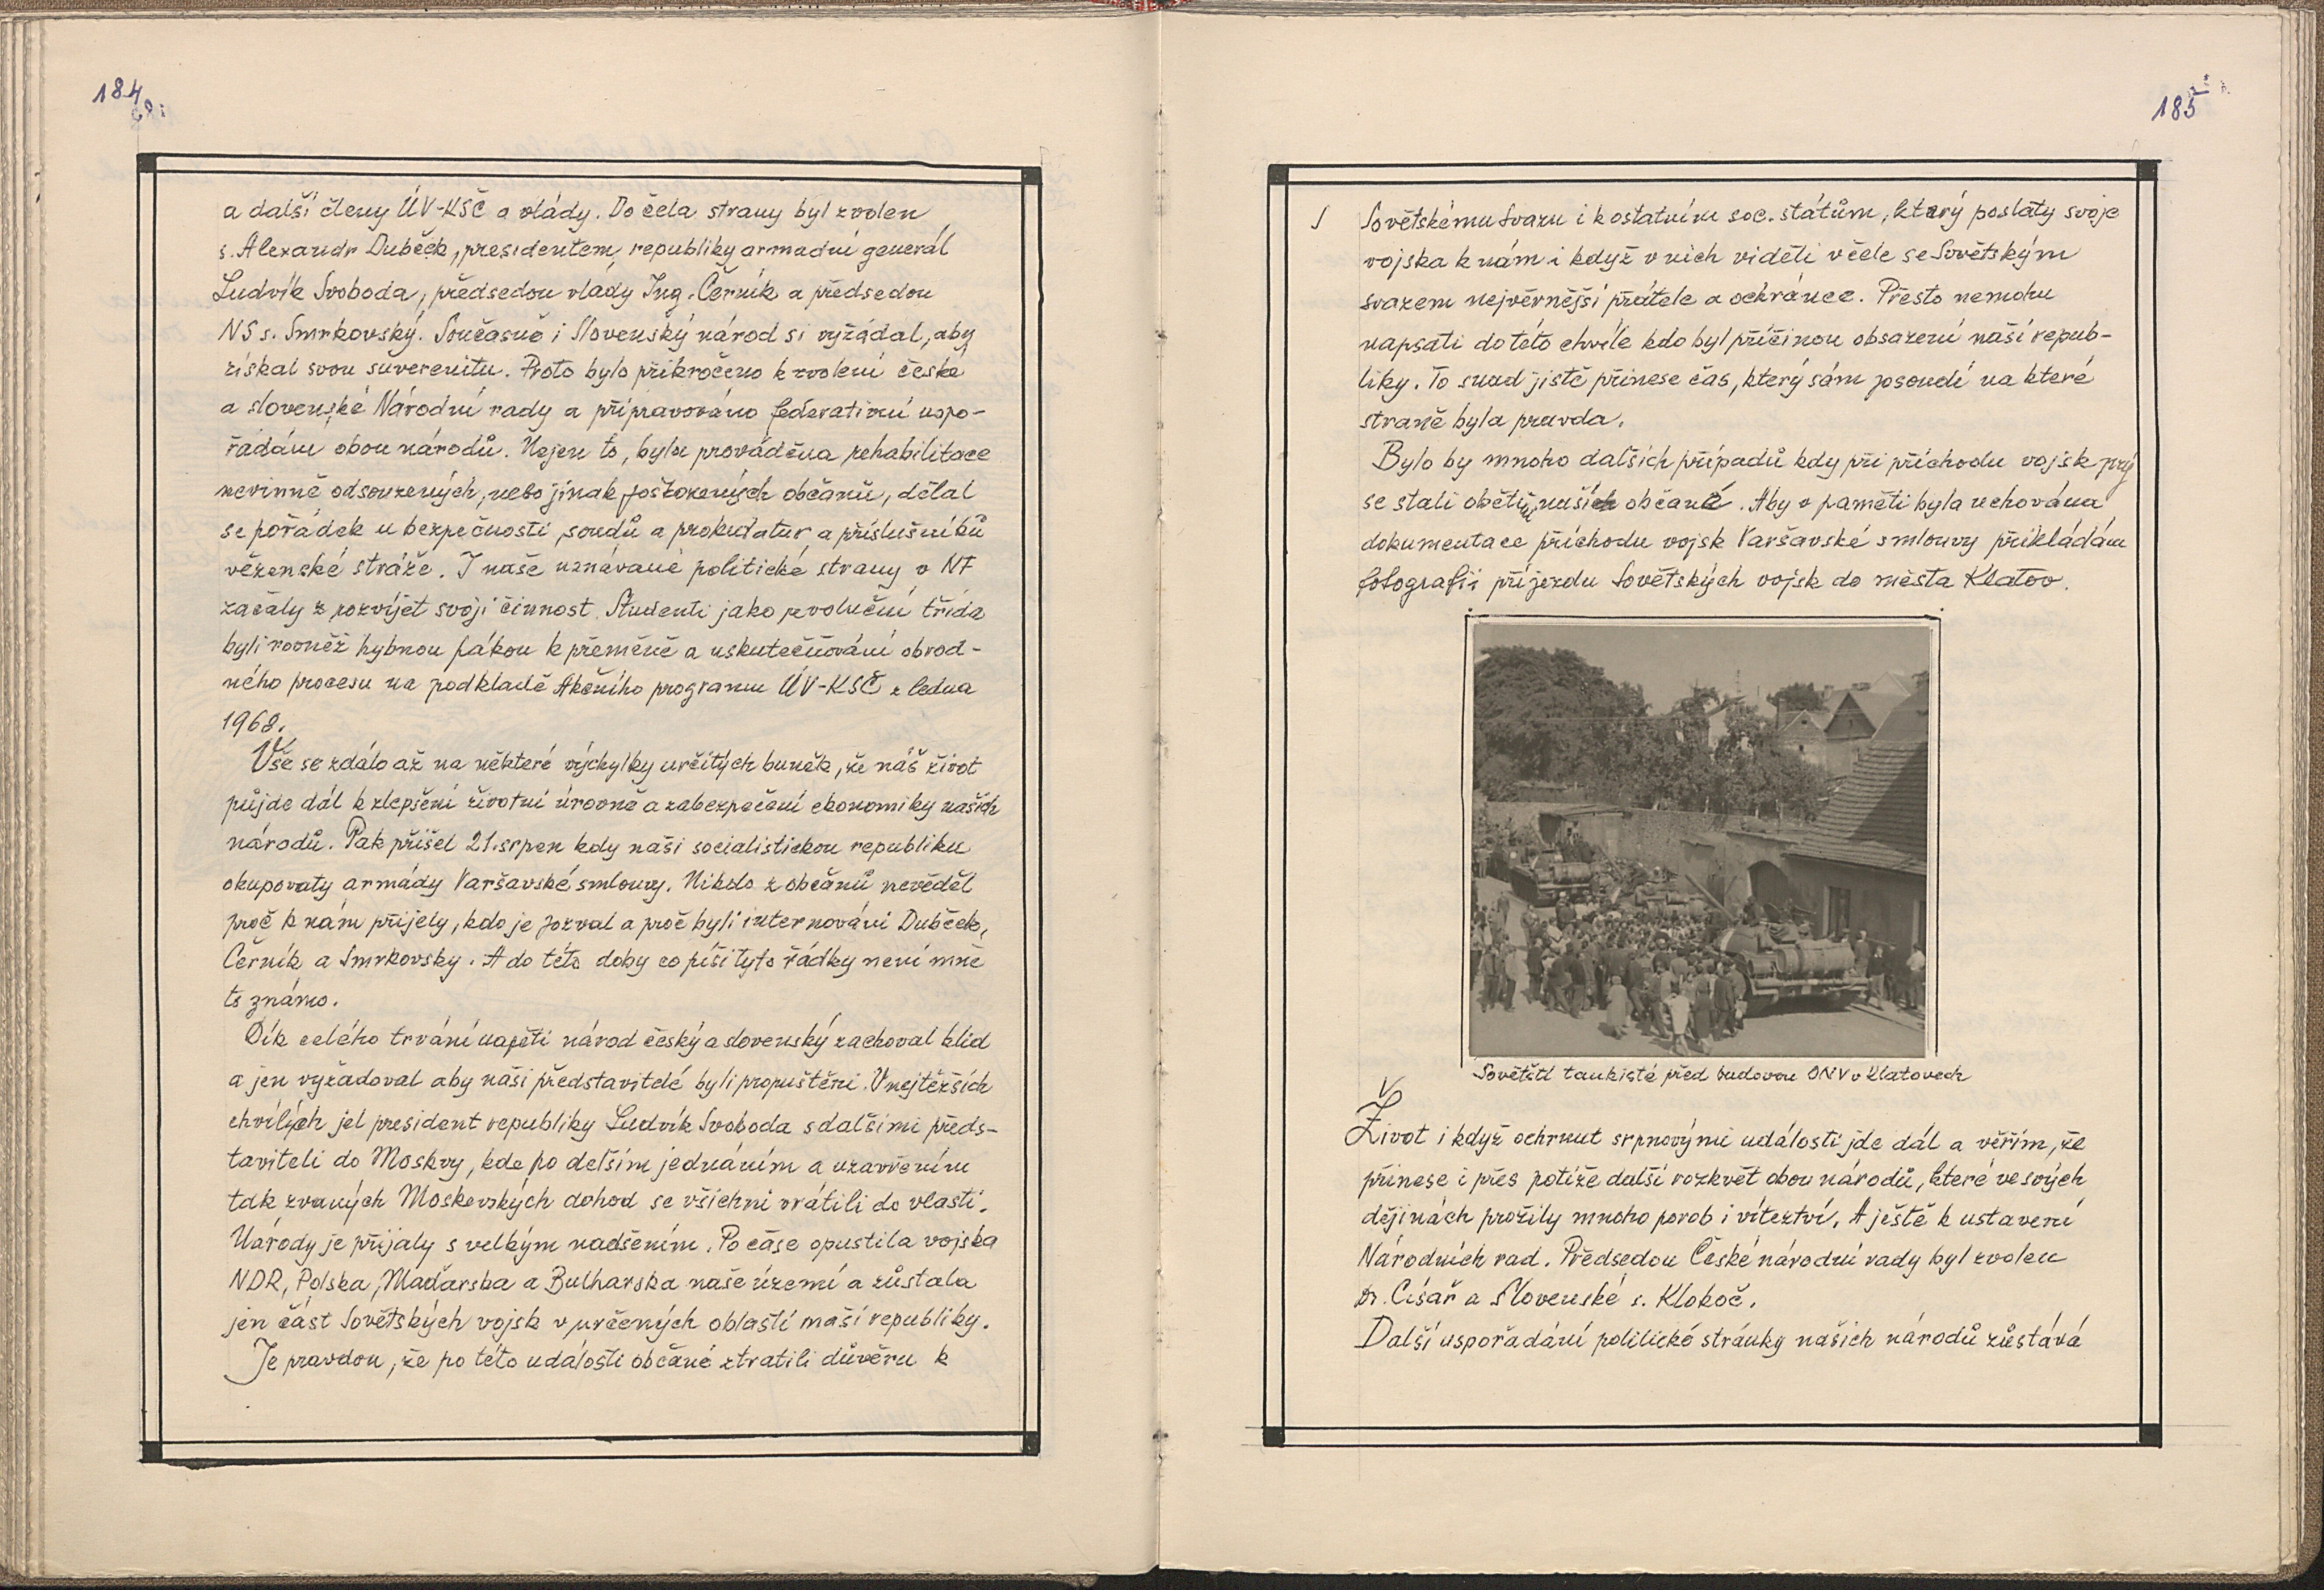 184
a další členy ÚV-KSČ a vlády. Do čela strany byl zvolen
s. Alexandr Dubček, presidentem republiky armadní generál
Ludvík Svoboda, předsedou vlády Ing. Černík a předsedou
NS s. Smrkovský. Současně i Slovenský národ si vyžádal, aby
získal svou suverenitu. Proto bylo přikročeno k zvolení české
a slovenské Národní rady a připravováno federativní uspo-
řádání obou národů. Nejen to, byla prováděna rehabilitace
nevinně odsouzených, nebo jinak poškozených občanů, dělal
se pořádek u bezpečnosti, soudů a prokuratur a příslušníků
věženské stráže. I naše uznávané politické strany v NF
začaly rozvíjet svoji činnost. Studenti jako revoluční třída
byli rovněž hybnou pákou k přeměně a uskutečňování obrod-
ného procesu na podkladě Akčního programu ÚV-KSČ z ledna
1968.
Vše se zdálo až na některé výchylky určitých buněk, že náš život
půjde dál k zlepšení životní úrovně a zabezpečení ekonomiky našich
národů. Pak přišel 21. srpen kdy naši socialistickou republiku
okupovaly armády Varšavské smlouvy. Nikdo z občanů nevěděl
proč k nám přijely, kdo je pozval a proč byli internováni Dubček,
Černík a Smrkovský. A do této doby co píši tyto řádky není mně
to známo.
Dík celého trvání napětí národ český a slovenský zachoval klid
a jen vyžadoval aby naši představitelé byli propuštěni. V nejtěžších
chvílých jel president republiky Ludvík Svoboda s dalšími předs-
taviteli do Moskvy, kde po delším jednáním a uzavřením
tak zvaných Moskevských dohod se všichni vrátili do vlasti.
Národy je přijaly s velkým nadšením. Po čase opustila vojska
NDR, Polska, Maďarska a Bulharska naše území a zůstala
jen část Sovětských vojsk v určených oblastí naší republiky.
Je pravdou, že po této události občané ztratili důvěru k
185
Sovětskému Svazu i k ostatním soc. státům, který poslaty svoje
vojska k nám i když v nich viděli v čele se Sovětským
svazem nejvěrnější přátele a ochránce. Přesto nemohu
napsati do této chvíle kdo byl příčinou obsazení naší repub-
liky. To snad jistě přinese čas, který sám posoudí na které
straně byla pravda.
Bylo by mnoho dalších případů kdy při příchodu vojsk prý
se stali obětí naši občané. Aby v paměti byla uchována
dokumentace příchodu vojsk Varšavské smlouvy přikládám
fotografii příjezdu Sovětských vojsk do města Klatov.
Sovětští tankisté před budovou ONV v Klatovech
Život i když ochrnut srpnovými událostí jde dál a věřím, že
přinese i přes potíže další rozkvět obou národů, které ve svých
dějinách prožily mnoho porob i víteztví. A ještě k ustavení
Národních rad. Předsedou České národní rady byl zvolen
Dr. Císař a Slovenské s. Klokoč.
Další uspořádání politické stránky našich národů zůstává